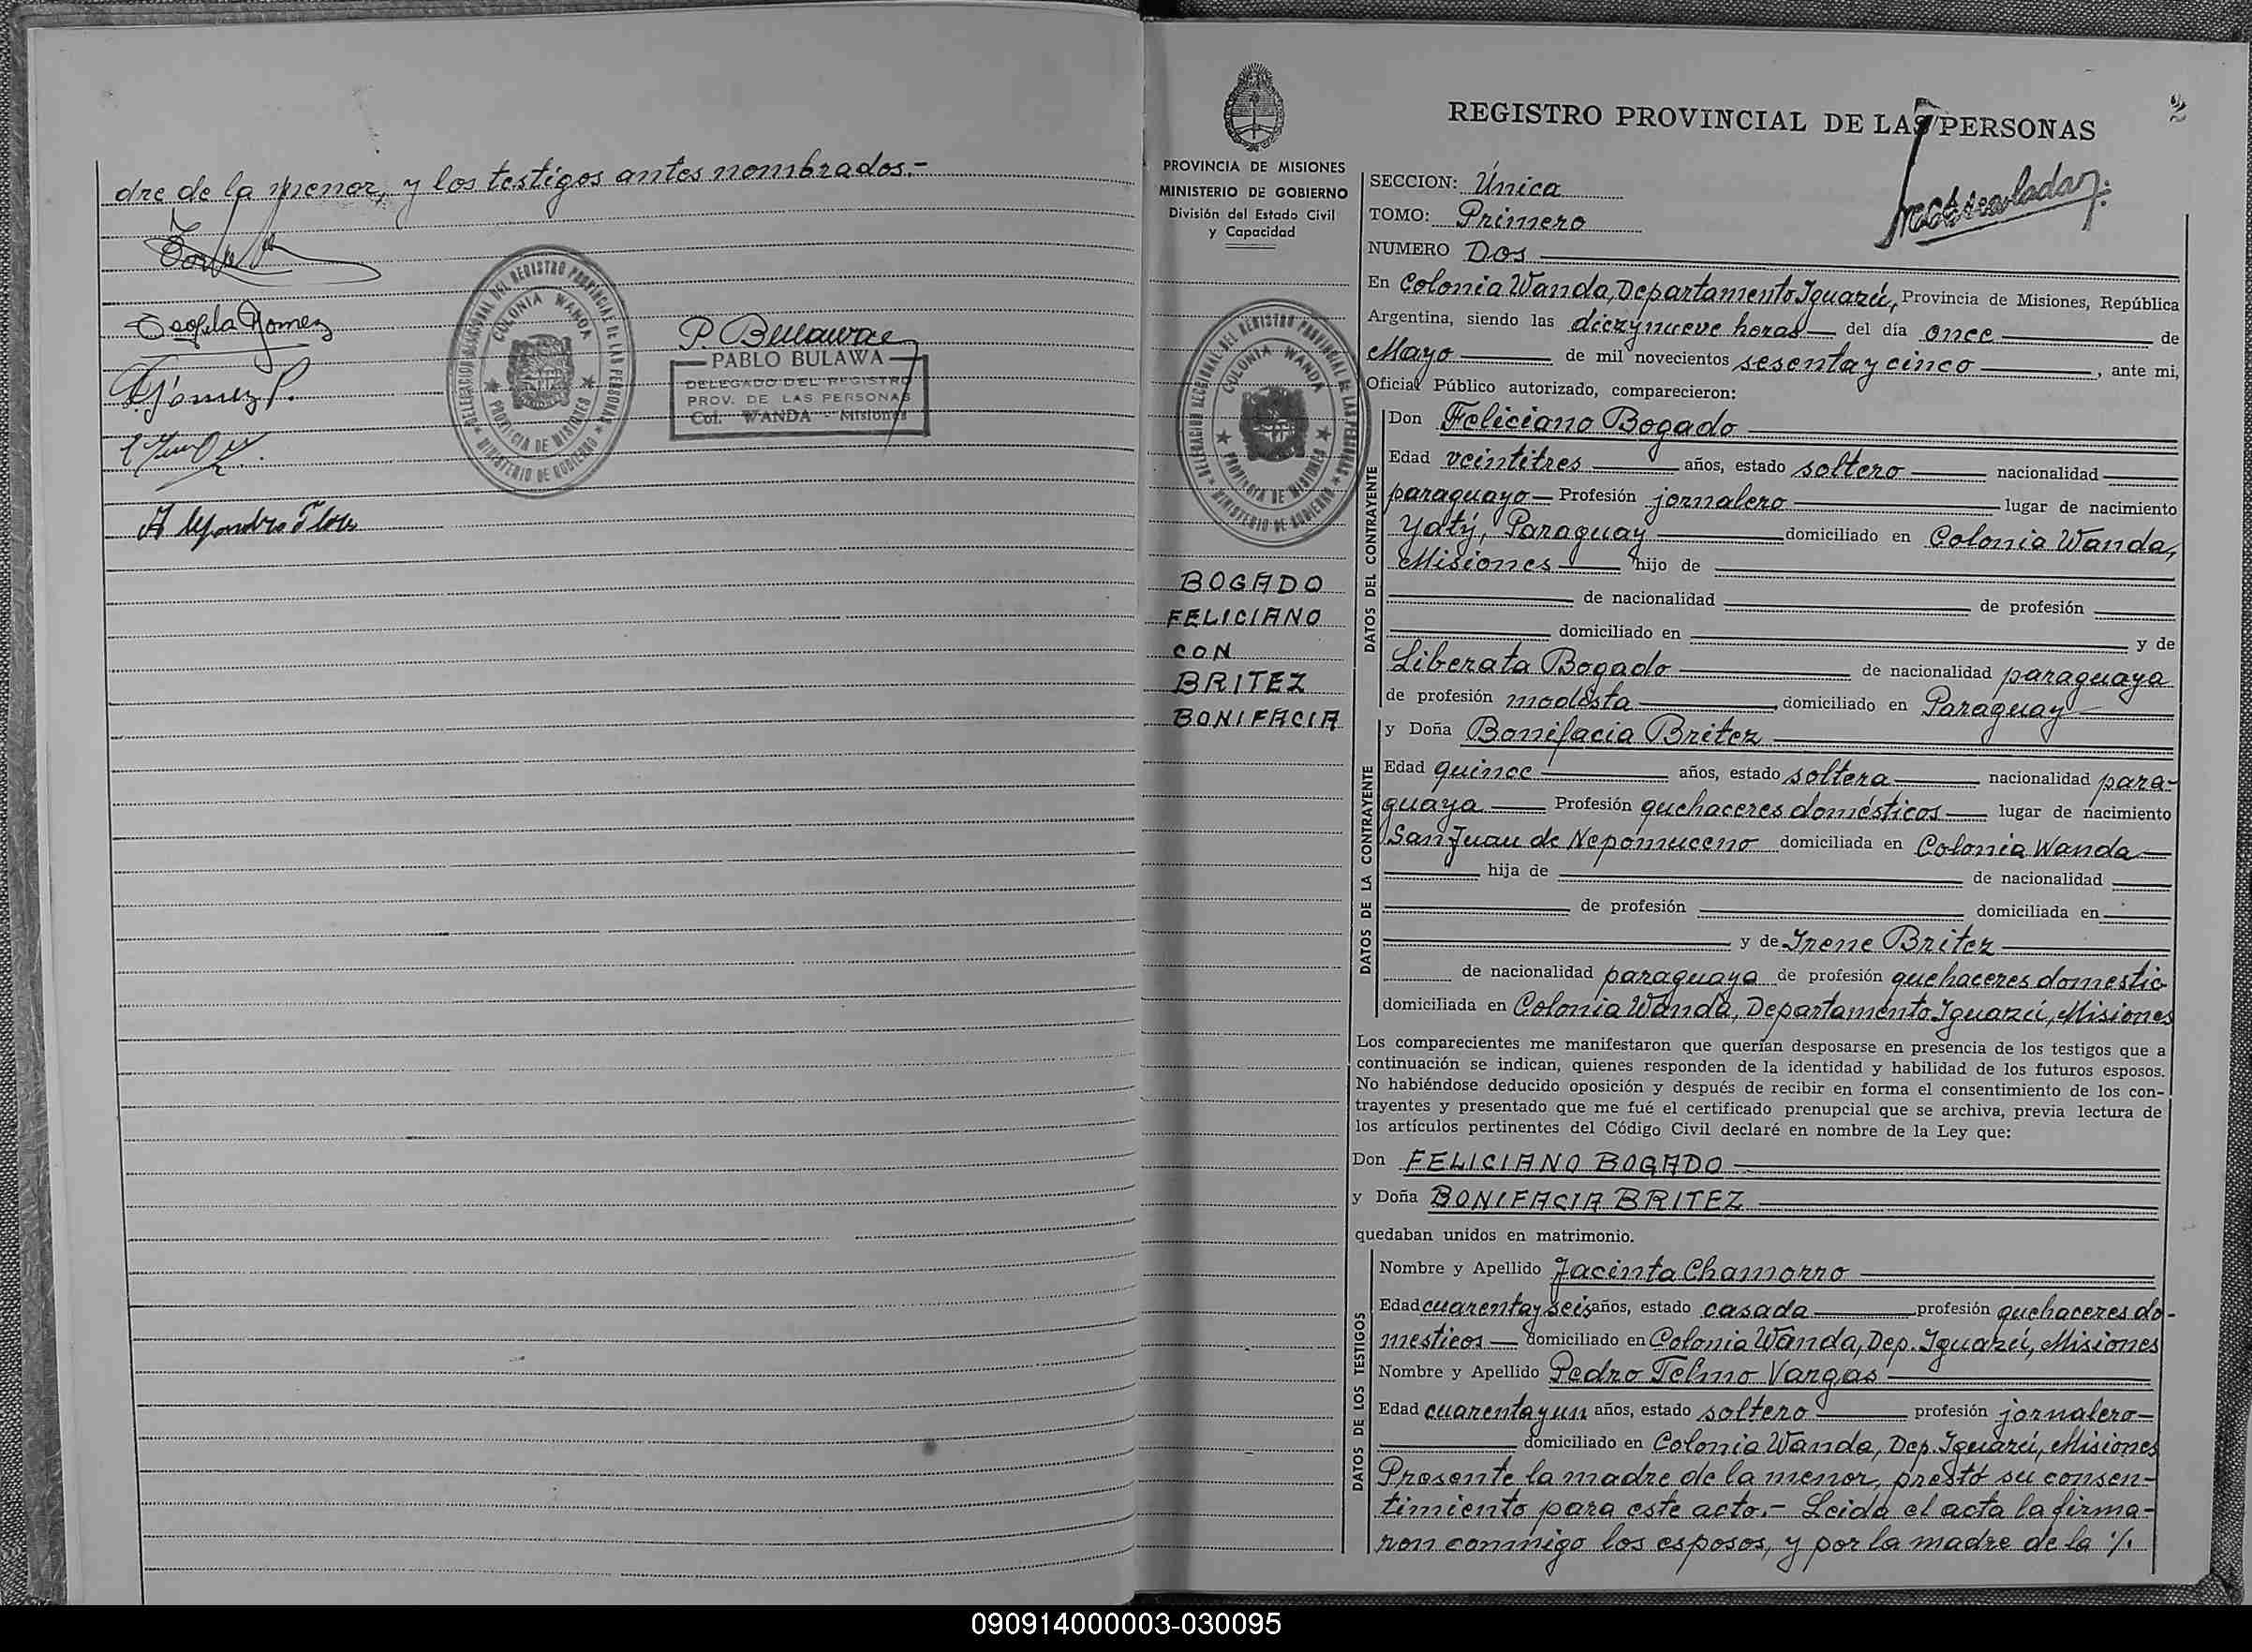 dre de la menor, y los testigos antes nombrados.-
Teofila Gomez
Alejandro Flores
DELEGACION REGIONAL DEL REGISTRO PROVINCIAL DE LAS PERSONAS
COLONIA WANDA
PROVINCIA DE MISIONES
MINISTERIO DE GOBIERNO
P. Bulawa
PABLO BULAWA
DELEGADO DEL REGISTRO
PROV. DE LAS PERSONAS
Col. WANDA - Misiones
PROVINCIA DE MISIONES
MINISTERIO DE GOBIERNO
División del Estado Civil
y Capacidad
DELEGACION REGIONAL DEL REGISTRO PROVINCIAL DE LAS PERSONAS
COLONIA WANDA
PROVINCIA DE MISIONES
MINISTERIO DE GOBIERNO
BOGADO
FELICIANO
CON
BRITEZ
BONIFACIA
REGISTRO PROVINCIAL DE LAS PERSONAS
2
SECCION: Única
TOMO: Primero
NUMERO Dos
En Colonia Wanda, Departamento Iguazú, Provincia de Misiones, República
Argentina, siendo las diez y nueve horas del día once de
Mayo de mil novecientos sesenta y cinco, ante mi,
Oficial Público autorizado, comparecieron:
DATOS DEL CONTRAYENTE
Don Feliciano Bogado
Edad veintitres años, estado soltero nacionalidad
paraguayo Profesión jornalero lugar de nacimiento
Yatý, Paraguay domiciliado en Colonia Wanda,
Misiones hijo de
de nacionalidad de profesión
domiciliado en y de
Liberata Bogado de nacionalidad paraguaya
de profesión modista, domiciliado en Paraguay
DATOS DE LA CONTRAYENTE
y Doña Bonifacia Britez
Edad quince años, estado soltera nacionalidad para-
guaya Profesión quehaceres domésticos lugar de nacimiento
San Juan de Nepomuceno domiciliada en Colonia Wanda
hija de de nacionalidad
de profesión domiciliada en
y de Irene Britez
de nacionalidad paraguaya de profesión quehaceres domestic
domiciliada en Colonia Wanda, Departamento Iguazú, Misiones
Los comparecientes me manifestaron que querían desposarse en presencia de los testigos que a
continuación se indican, quienes responden de la identidad y habilidad de los futuros esposos.
No habiéndose deducido oposición y después de recibir en forma el consentimiento de los con-
trayentes y presentado que me fué el certificado prenupcial que se archiva, previa lectura de
los artículos pertinentes del Código Civil declaré en nombre de la Ley que:
Don FELICIANO BOGADO
y Doña BONIFACIA BRITEZ
quedaban unidos en matrimonio.
DATOS DE LOS TESTIGOS
Nombre y Apellido Jacinta Chamorro
Edad cuarenta y seis años, estado casada profesión quehaceres do-
mesticos domiciliado en Colonia Wanda, Dep. Iguazú, Misiones
Nombre y Apellido Pedro Telmo Vargas
Edad cuarenta y un años, estado soltero profesión jornalero
domiciliado en Colonia Wanda, Dep. Iguazú, Misiones
Presente la madre de la menor, prestó su consen-
timiento para este acto.- Leida el acta la firma-
ron conmigo los esposos, y por la madre de la ./.
090914000003-030095